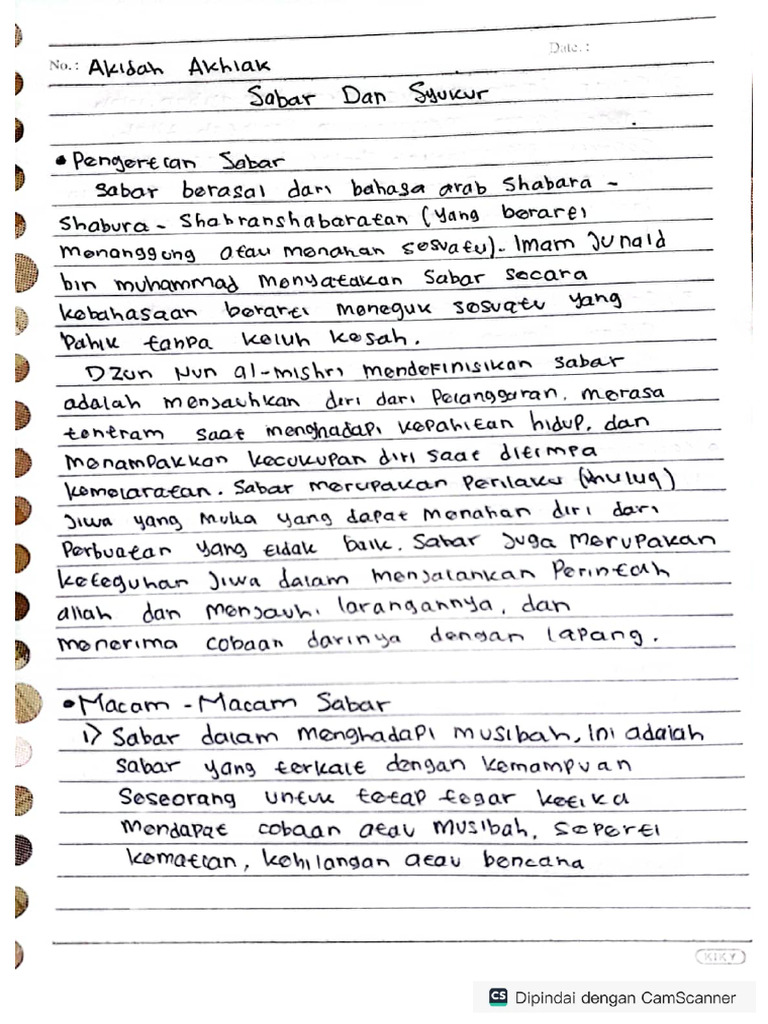 Date. :
No. : Akidah Akhlak
Sabar Dan Syukur
• Pengertian Sabar
Sabar berasal dari bahasa arab Shabara -
Shabura - Shabranshabaratan (yang berarti
menanggung atau menahan sesuatu). Imam Junaid
bin muhammad menyatakan Sabar secara
kebahasaan berarti meneguk sesuatu yang
Pahit tanpa keluh kesah.
Dzun Nun al-mishri mendefinisikan sabar
adalah menjauhkan diri dari Pelanggaran, merasa
tentram saat menghadapi kepahitan hidup, dan
menampakkan kecukupan diri saat ditimpa
kemelaratan. Sabar merupakan Perilaku (khuluq)
Jiwa yang mulia yang dapat menahan diri dari
Perbuatan yang tidak baik. Sabar Juga merupakan
keteguhan Jiwa dalam menjalankan Perintah
allah dan menjauhi larangannya, dan
menerima cobaan darinya dengan lapang.
• Macam - Macam Sabar
1) Sabar dalam menghadapi musibah, Ini adalah
sabar yang terkait dengan kemampuan
Seseorang untuk tetap tegar ketika
mendapat cobaan atau musibah, seperti
kematian, kehilangan atau bencana
KIKY
CS Dipindai dengan CamScanner